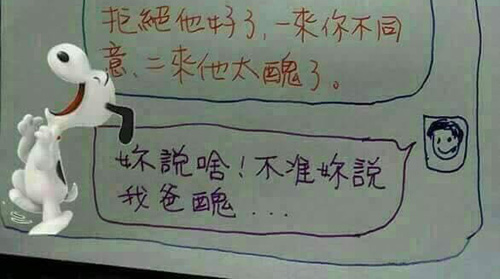 拒絕他好了,一來你不同
意、二來他太醜了。
妳說啥!不准妳說
我爸醜...